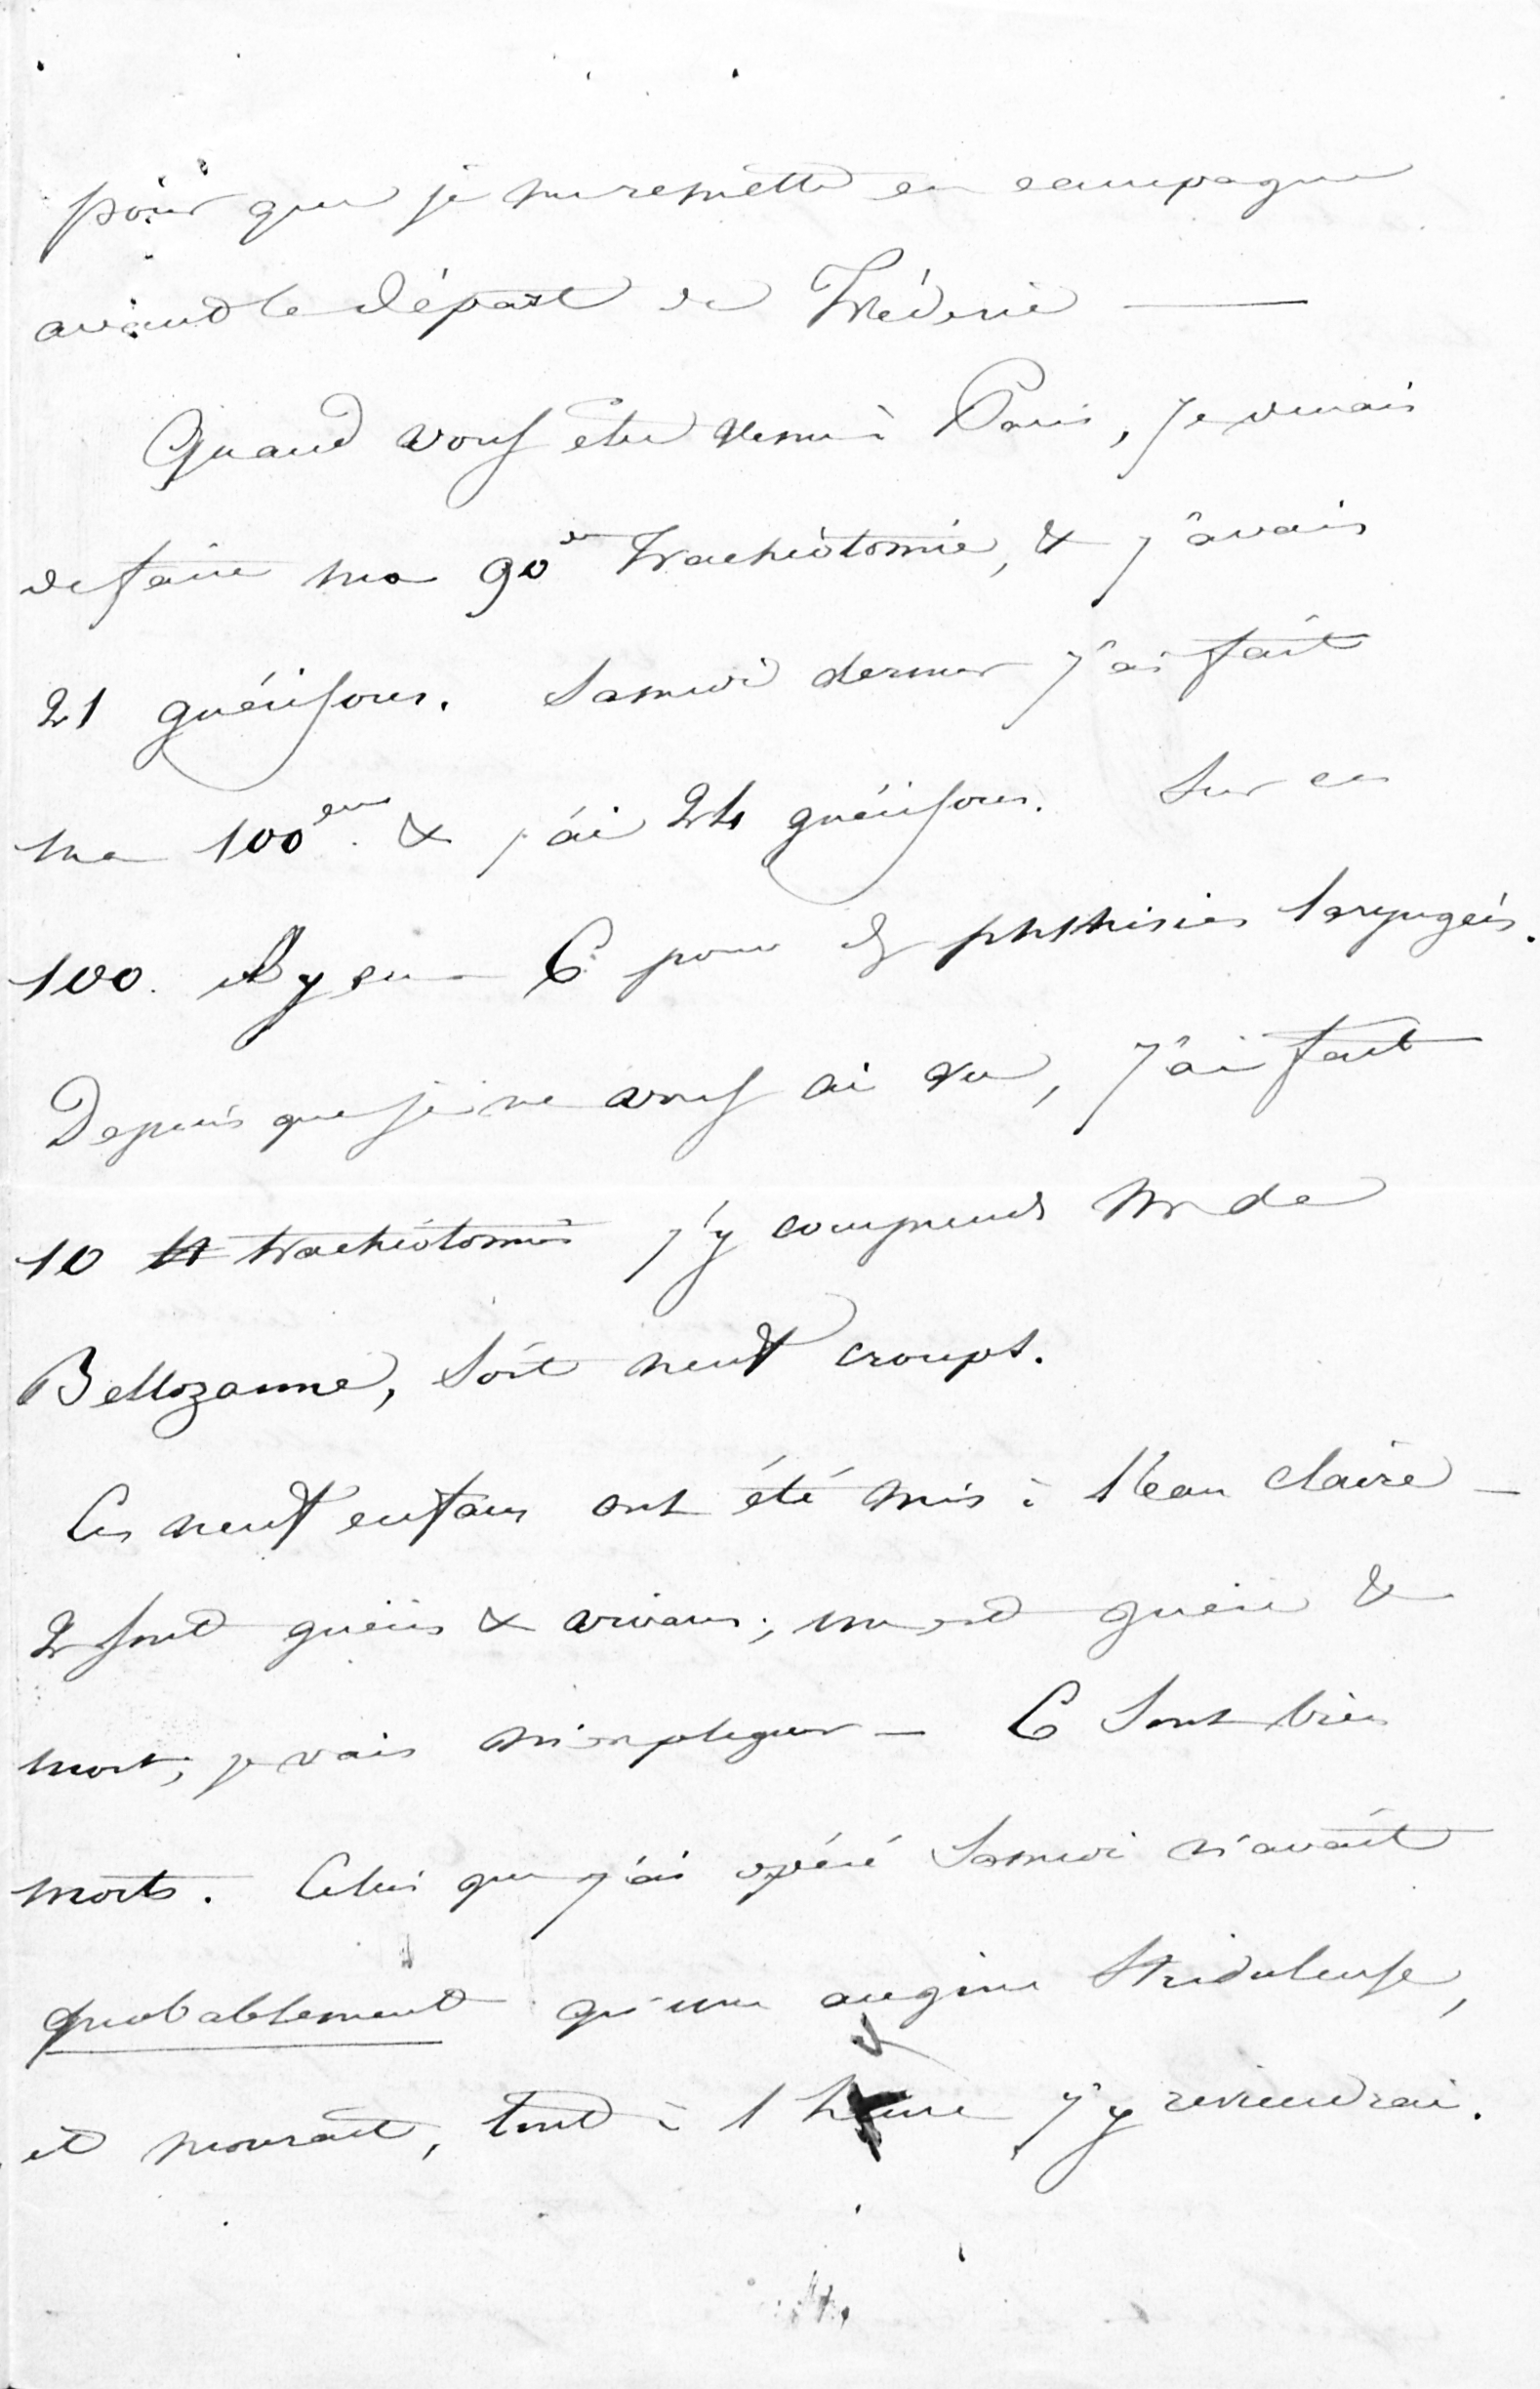 pour que je me remette en campagne
avant le départ de Frédéric —
Quand vous êtes venu à Paris, je venais
de faire ma 90e trachéotomie, & j'avais
21 guérisons. Samedi dernier j'ai fait
ma 100eme. & j'ai 24 guérisons. Sur ces
100. il y en a 6 pour des phthisies laryngées.
Depuis que je ne vous ai vu, j'ai fait
10 trachéotomies j'y comprends Mr de
Bellozanne, soit neuf croups.
Ces neuf enfans ont été mis à l'eau claire —
2 sont guéris & vivans; un est guéri &
mort, je vais m'expliquer — 6 sont bien
morts. Celui que j'ai opéré Samedi n'avait
probablement qu'une angine striduleuse,
et mourait, tout à l'heure j'y reviendrai.